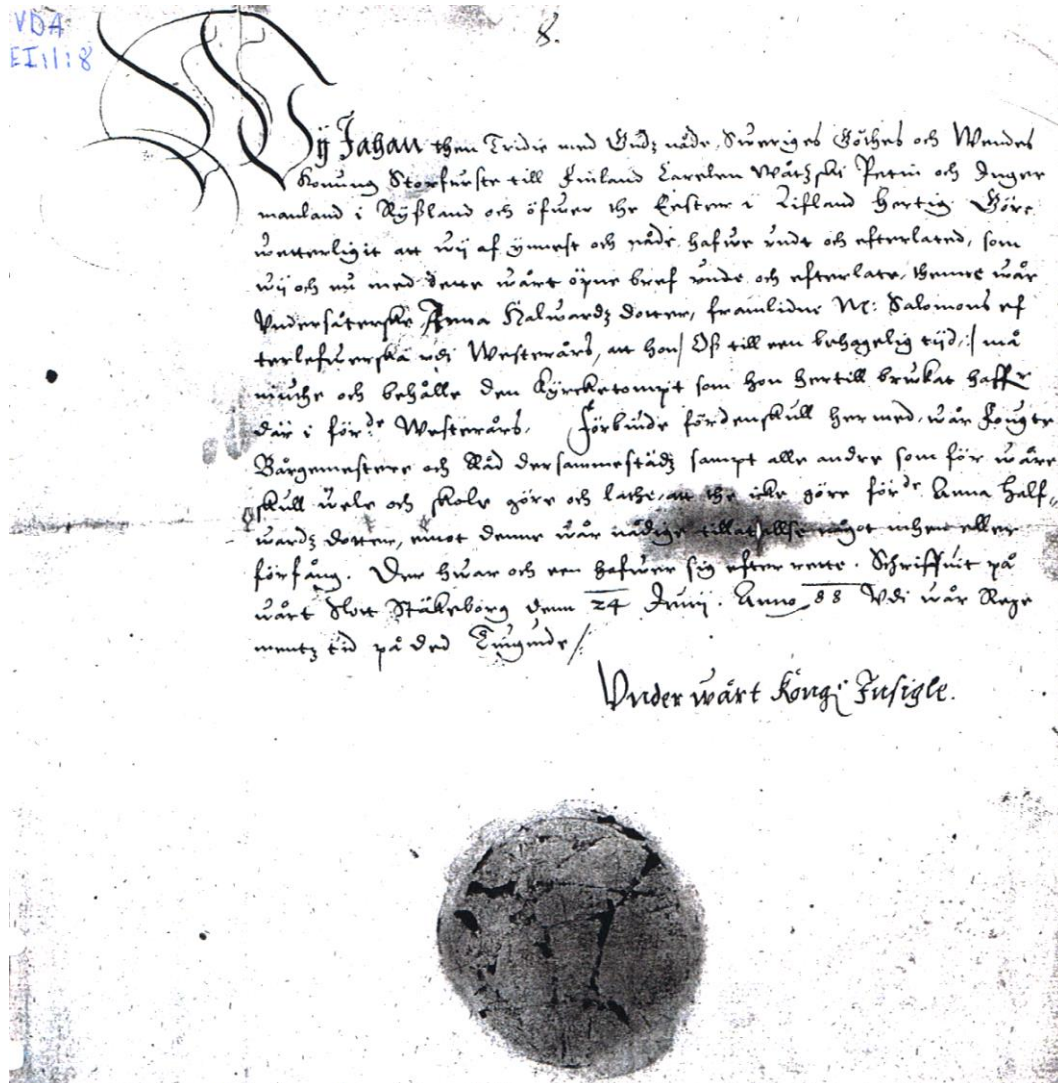 VDA
EI:1:8
8.
Wij Johan then Tridie med Gudz nåde, Sweriges Göthes och Wendes
Konung Storfurste till Finland Carelen Wåtzski Petin och Inger
manland i Ryßland och öfwer the Eester i Lifland Hertig Göre
wetterligit att wij af ynnest och nåde hafwe undt och efterlated, som
wij och nu med dette wårt öpne bref unde och efterlate, thenne wår
Undersåterske Anna Halwardz dotter, framlidne M: Salomons ef
terlefwerska udi Westerårs, att hon/ Oß till een behagelig tijd,:/ må
niuthe och behålle den Kyrcketompt som hon hertill brukat haffr
där i förde Westerårs. Förbiude fördenskull hermed, wår Fougte
Borgemestere och Råd dersammestädz sampt alle andre som för wåre
skull wele och skole göre och lathe, att the icke göre förde Anna Half„
wardz dotter, emot denne wår nådige något mehen eller
förfång. Der hwar och een hafwer sig efter rette. Schriffuit på
wårt Slott Stäkeborg denn 24 Junij. Anno 88 Udi wår Rege
mentz tid på ded Tiugunde/:
Under wårt Kongz Insigle.